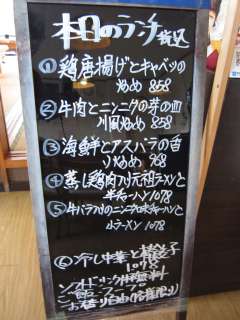 本日のランチ 税込
①鶏唐揚げとキャベツの
炒め 858
②牛肉とニンニクの芽の四
川風炒め 858
③海鮮とアスパラの香
り炒め 968
④蒸し鶏肉入り元祖ラーメンと
半チャーハン 1078
⑤牛バラ入りのニンニク味チャーハンと
小ラーメン 1078
⑥冷し中華と
1078
ソフトドリンク1杯無料
ご飯・スープ
おかわり自由